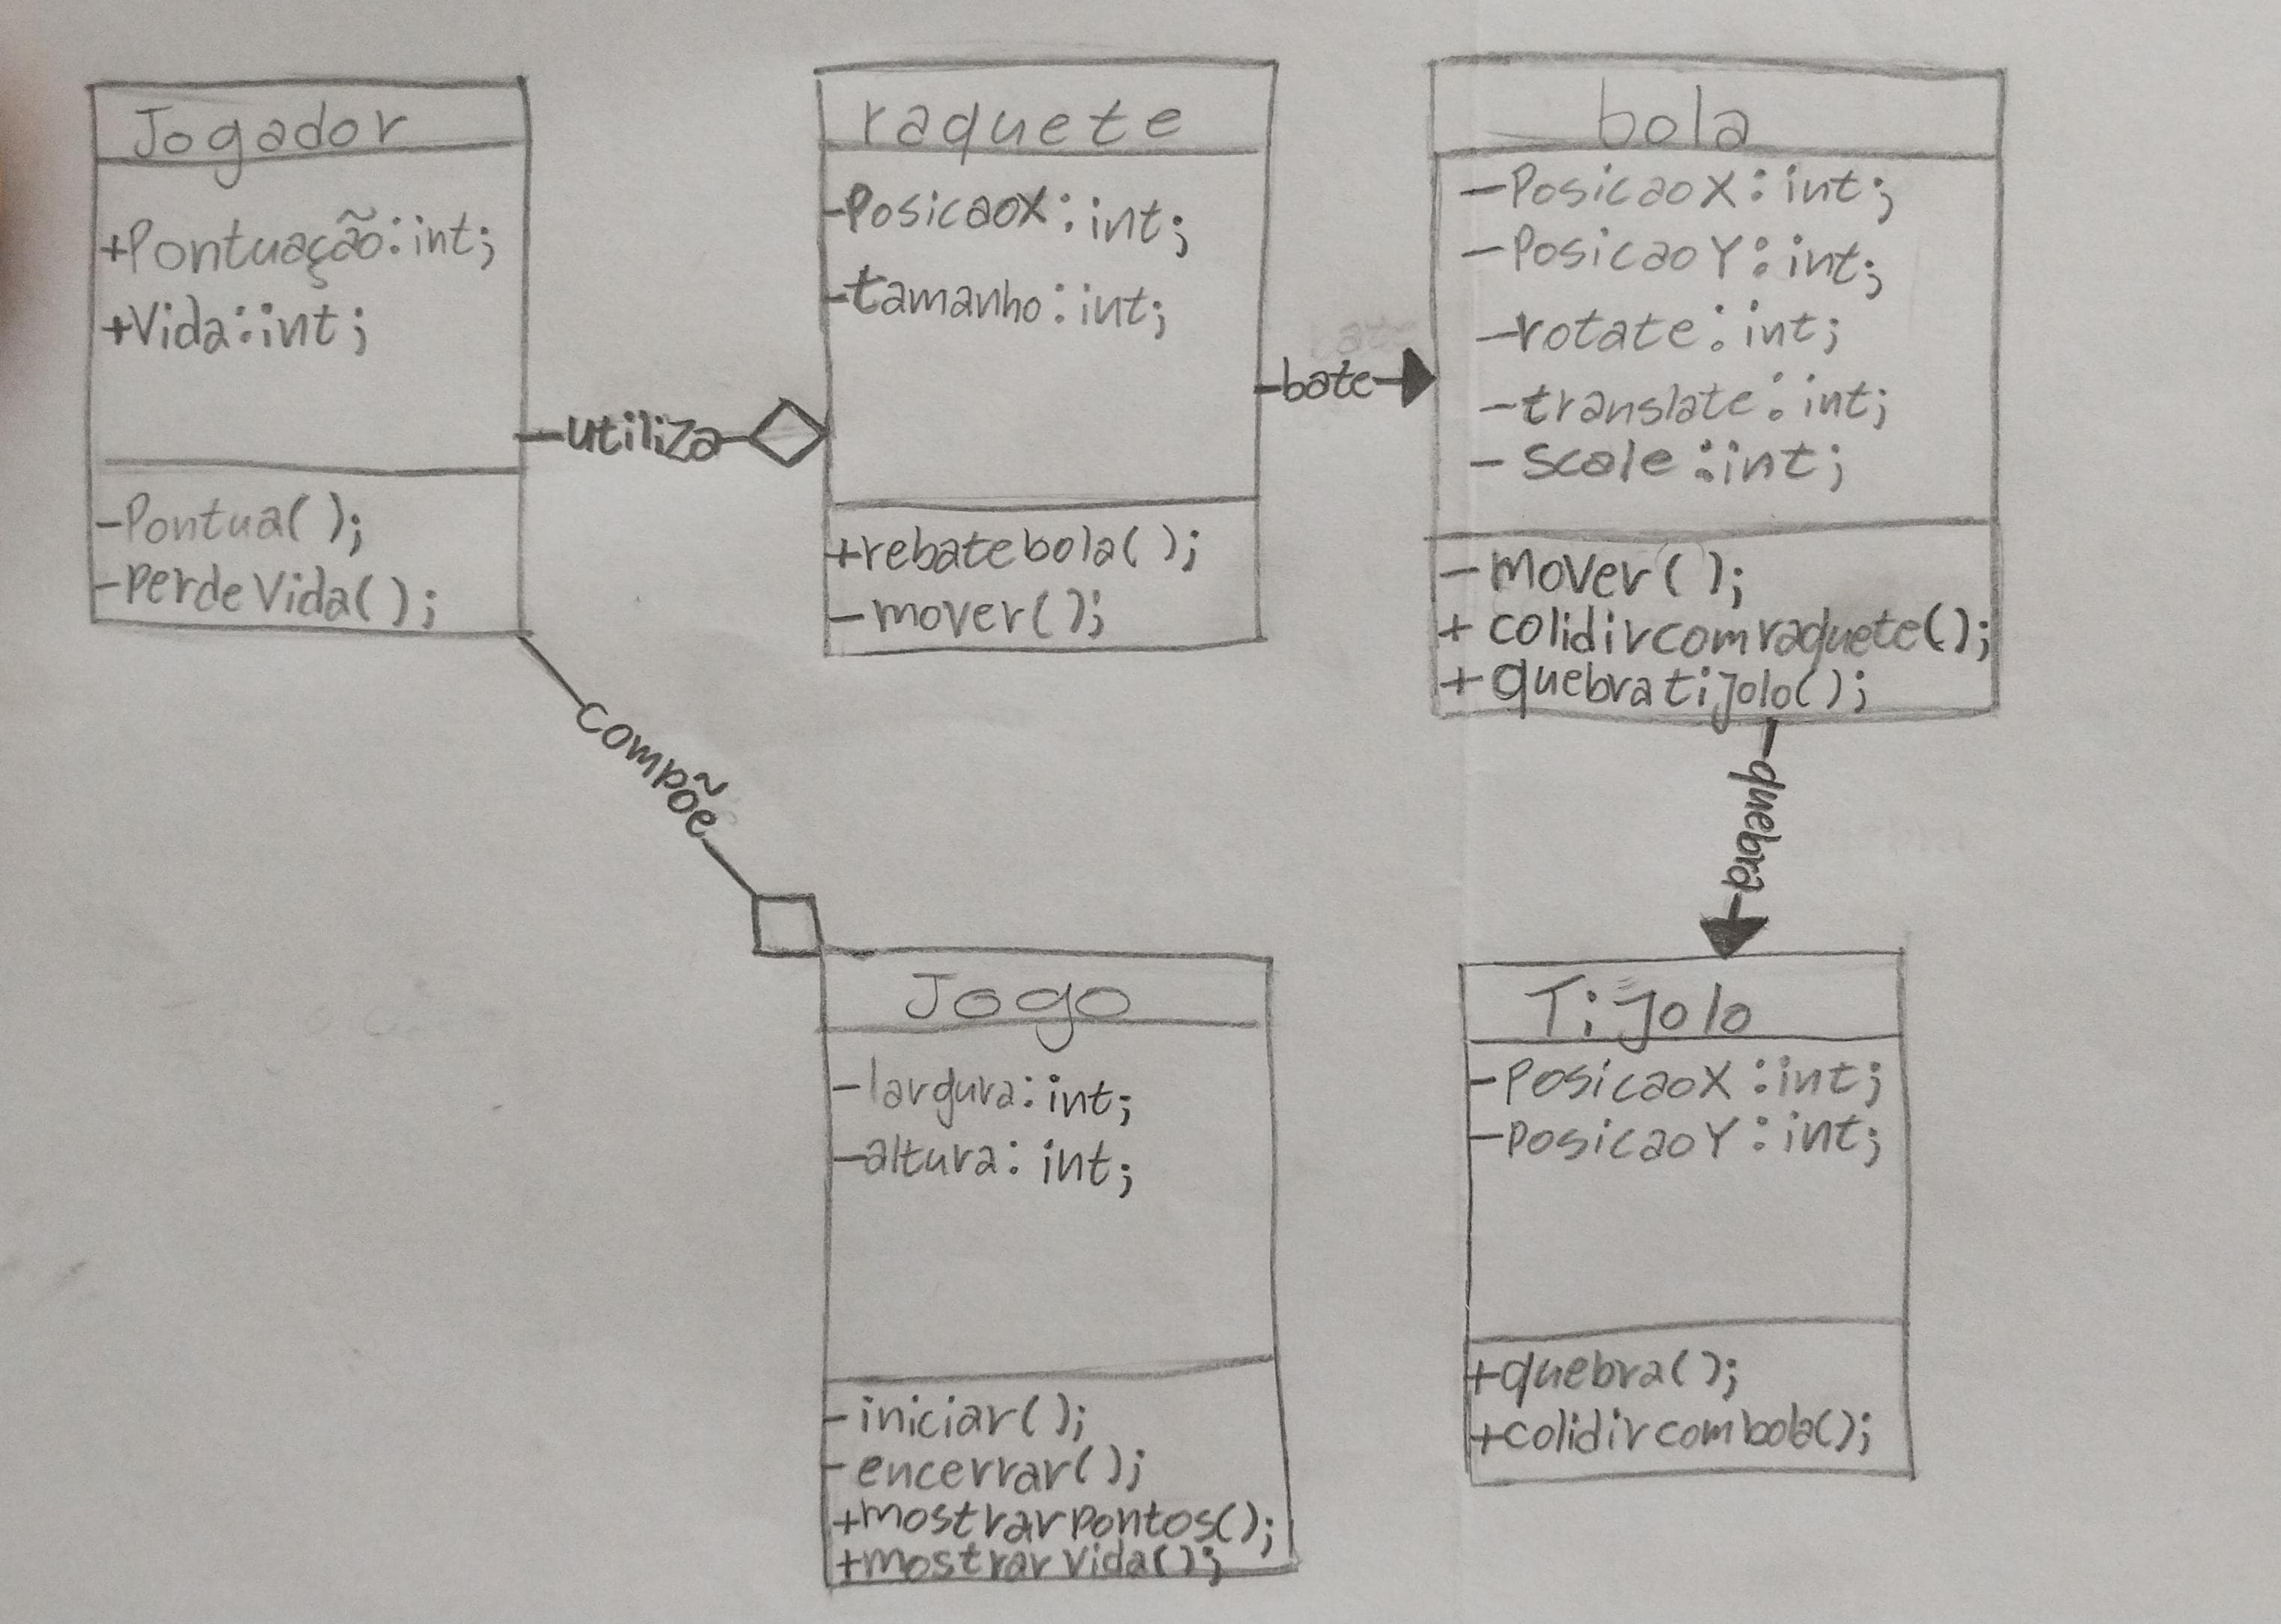 Jogador
+Pontuação:int;
+Vida:int;
-Pontua();
-perdeVida();
utiliza
raquete
-PosicaoX:int;
-tamanho:int;
+rebatebola();
-mover();
bate
bate
bola
-PosicaoX:int;
-PosicaoY:int;
-rotate:int;
-translate:int;
-scale:int;
-mover();
+colidircomraquete();
+quebratijolo();
compõe
quebra
Jogo
-largura:int;
-altura:int;
-iniciar();
-encerrar();
+mostrarpontos();
+mostrarvida();
Tijolo
-PosicaoX:int;
-posicaoY:int;
+quebra();
+colidircombola();